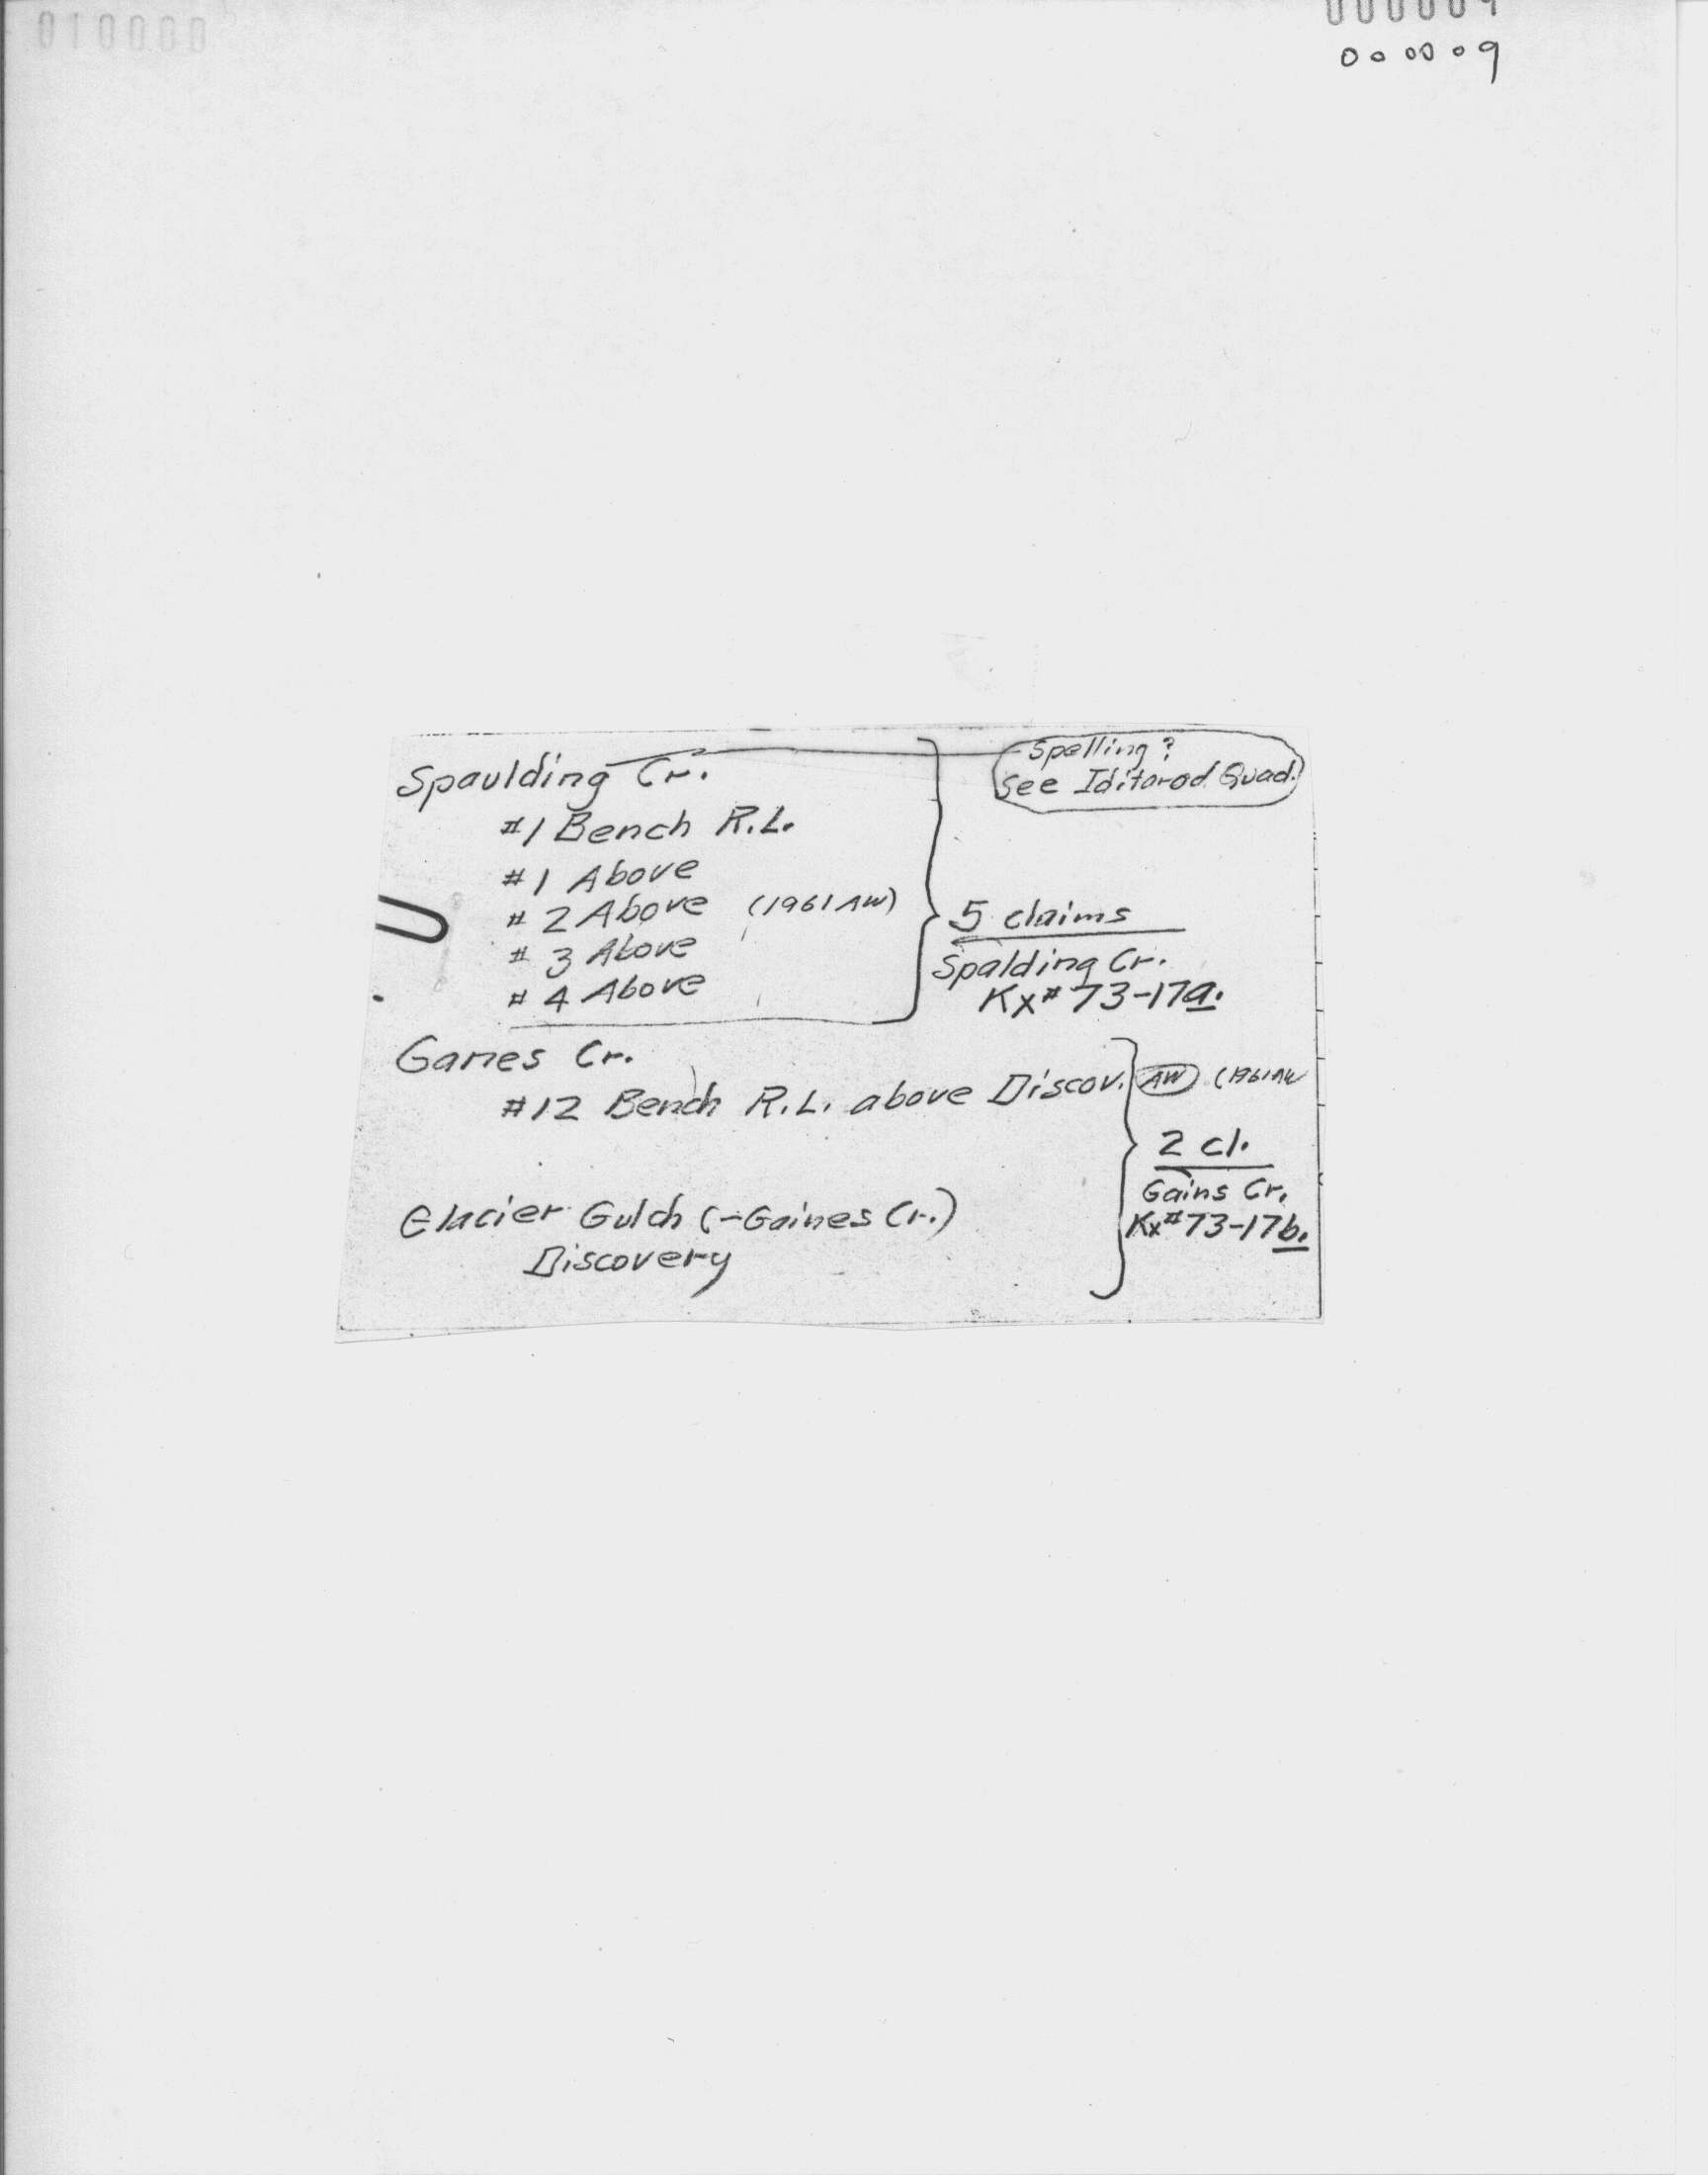 000009
Spaulding Cr.
Spelling?
See Iditarod Quad.
#1 Bench R.L.
#1 Above
#2 Above (1961 AW)
#3 Above
#4 Above
5 claims
Spalding Cr.
Kx# 73-17a.
Ganes Cr.
#12 Bench R.L. above Discov. AW (1961 AW
2 cl.
Gains Cr.
Kx# 73-17b.
Glacier Gulch (-Gaines Cr.)
Discovery